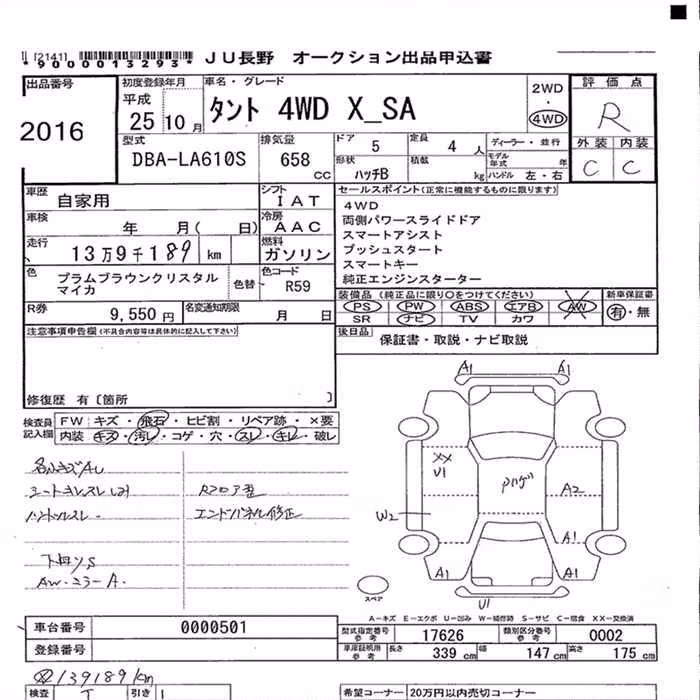 [2141]
*9000013293* JU長野 オークション出品申込書
出品番号 初度登録年月 車名・グレード 評価点
2016 平成 25 10月 タント 4WD X_SA 2WD ・ 4WD R
型式 排気量 ドア 定員 ディーラー・並行 外装 内装
DBA-LA610S 658 CC 5 4人 モデル年式 年 C C
形状 積載 ハッチB kg ハンドル 左・右
車歴 自家用 シフト IAT セールスポイント(正常に機能するものに限ります)
車検 年 月( 日) 冷房 AAC
走行 13万9千189 km 燃料 ガソリン
4WD
両側パワースライドドア
スマートアシスト
プッシュスタート
スマートキー
純正エンジンスターター
色 プラムブラウンクリスタルマイカ 色替 色コード R59
R券 9,550円 名変通知期限 月 日
装備品(純正品に限り○をつけてください) 新車保証書
PS PW ABS エアB AW 有・無
SR ナビ TV カワ
注意事項申告欄(不具合内容等は具体的に記入して下さい) 後日品 保証書・取説・ナビ取説
修復歴 有〔箇所 〕
検査員記入欄 FW キズ・飛石・ヒビ割・リペア跡・×要
内装 キズ・汚レ・コゲ・穴・スレ・キレ・破レ
Rフロア歪
エンドパネル修正
A1 A1
XX
U1
A2
W2
A1
A1 A1
U1
スペア
A−キズ E−エクボ U−凹み W−補修跡 S−サビ C−腐食 XX−交換済
車台番号 0000501
登録番号
型式指定番号参考 17626 類別区分番号参考 0002
車庫証明用参考 長さ 339cm 幅 147cm 高さ 175cm
139189km
検査 T 引き
希望コーナー 20万円以内売切コーナー